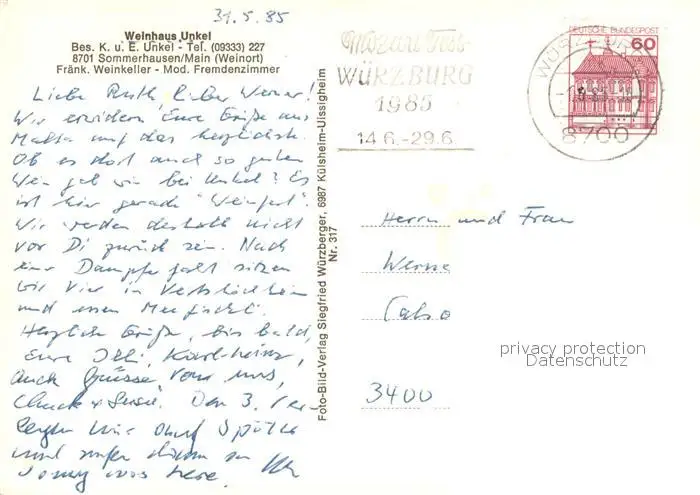 31.5.85
Weinhaus Unkel
Bes. K. u. E. Unkel - Tel. (09333) 227
8701 Sommerhausen/Main (Weinort)
Fränk. Weinkeller - Mod. Fremdenzimmer
Liebe Ruth, lieber Werner!
Wir erwidern Eure Grüße aus
Malta auf das herzlichste.
Ob es dort auch so guten
Wein gab wie bei Unkel? Es
ist hier gerade "Weinfest".
Wir werden deshalb nicht
vor Di zurück sein. Nach
einer Dampferfahrt sitzen
wir hier in
und essen
Herzliche Grüße, bis bald,
Eure Karlheinz,
Auch Grüsse von uns,
Chuck + Susie. Den 3.
wir auf
und
Foto-Bild-Verlag Siegfried Würzberger, 6987 Külsheim-Uissigheim
Nr. 317
Mozartfest
WÜRZBURG
1985
14.6.-29.6.
DEUTSCHE BUNDESPOST
60
WÜRZBURG
8700
Herrn und Frau
Werner
3400
privacy protection
Datenschutz